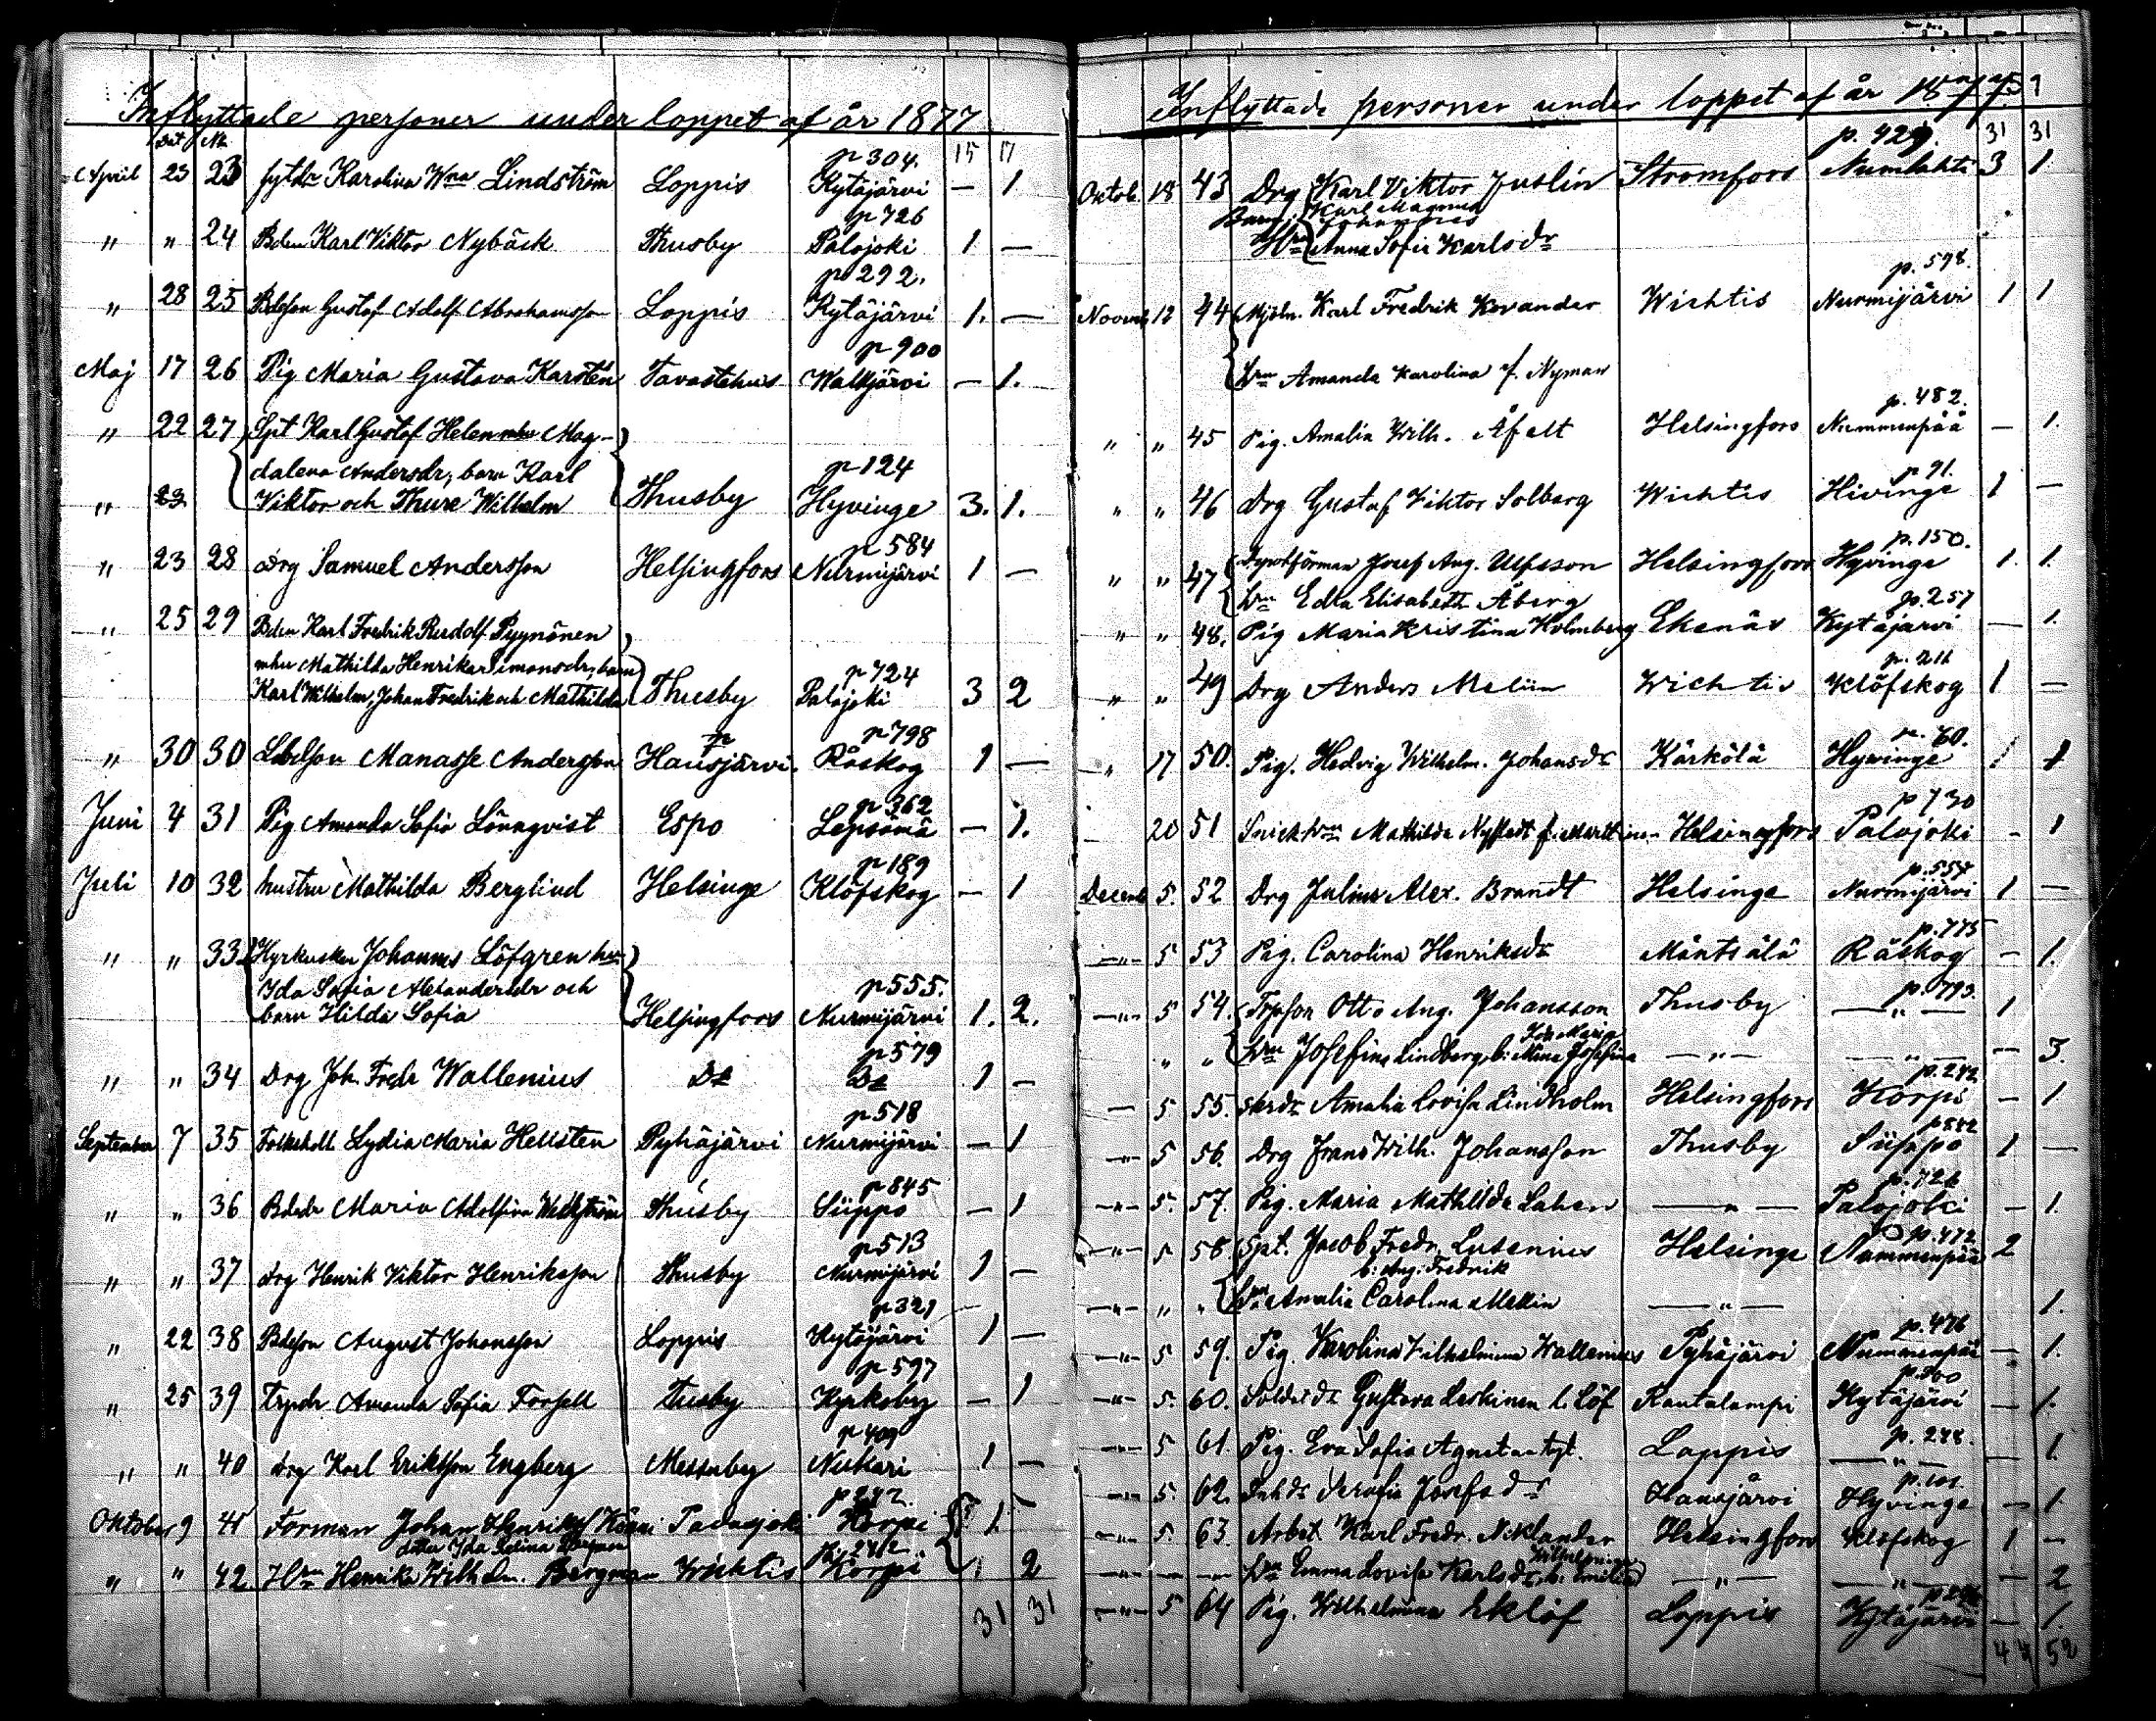 Inflyttade personer under loppet af år 1877
Dat No
p 304. 15 17
April 23 23 Karolina Wna Lindström Loppis Kytäjärvi — 1
p 726
" " 24 Karl Viktor Nybäck Thusby Palojoki 1 —
p 292.
" 28 25 Gustaf Adolf Abrahamsson Loppis Kytäjärvi 1. —
p 900
Maj 17 26 Pig Maria Gustava Karstén Tavastehus Walkjärvi — 1.
" 22 27 Spt Karl Gustaf Helen mhu Mag-
dalena Andersdr, barn Karl p 124
" 23 Viktor och Thure Wilhelm Thusby Hyvinge 3. 1.
p 584
" 23 28 Drg Samuel Andersson Helsingfors Nurmijärvi 1 —
" 25 29 Karl Fredrik Rudolf Pyynönen
mhu Mathilda Henrika Simonsdr, barn p 724
Karl Wilhelm, Johan Fredrik och Mathilda Thusby Palojoki 3 2
p 798
" 30 30 Manasse Andersson Hausjärvi. Råskog 1 —
p 362
Juni 4 31 Pig Amanda Sofia Lönnqvist Espo Lepsämä — 1.
p 189
Juli 10 32 hustru Mathilda Berglind Helsinge Klöfskog — 1
" " 33 Hyrkusken Johannes Löfgren hu
Ida Sofia Alexandersdr och p 555.
barn Hilda Sofia Helsingfors Nurmijärvi 1. 2.
p 579
" " 34 Drg Joh. Fredr Wallenius Do Do 1 —
p 518
September 7 35 Lydia Maria Hellsten Pyhäjärvi Nurmijärvi — 1
p 845
" " 36 Maria Adolfina Thusby Siippo — 1
p 513
" " 37 drg Henrik Viktor Henriksson Thusby Nurmijärvi 1 —
p 321
" 22 38 August Johansson Loppis Kytäjärvi 1 —
p 597
" 25 39 Amanda Sofia Forsell Tusby Kyrkoby — 1
p 409
" " 40 drg Karl Eriksson Engberg Messuby Nukari 1 —
p 242.
Oktober 9 41 Förman Johan Henriksson Padasjoki Korpi 1
dotter Ida
" " 42 Hun Henrika Wilhelm. Bergman Wichtis Korpi 1 2
31 31
Inflyttade personer under loppet af år 1877
p. 429. 31 31
Oktob. 18 43 Drg Karl Viktor Juslin Strömfors Numlahti 3 1.
Barn: Karl Magnus
Johannes
Hu Anna Sofia Karlsdr
p. 598.
Novemb 12 44 Mjöln. Karl Fredrik Kevander Wichtis Nurmijärvi 1 1
Hu Amanda Karolina f. Nyman
p. 482.
" " 45 Pig. Amalia Wilh. Åfelt Helsingfors Nummenpää — 1.
p 91.
" " 46 Drg Gustaf Viktor Solberg Wichtis Hivinge 1 —
p. 150.
" " 47 Josef Aug. Ulfsson Helsingfors Hyvinge 1. 1.
Hu Edla Elisabeth Åberg p. 257
" " 48. Pig Maria Kristina Holmberg Ekenäs Kytäjärvi — 1.
p. 211
" " 49 Drg Anders Melin Wichtis Klöfskog 1 —
p. 60.
" 17 50. Pig. Hedvig Wilhelm. Johansdr Kärkölä Hyvinge 1 1
p 730
20 51 Mathilda Nystedt f. Helsingfors Palojoki - 1
p. 554
Decemb 5. 52 Drg Julius Alex. Brandt Helsinge Nurmijärvi 1 —
p. 775
—"— 5 53 Pig. Carolina Henriksdr Mäntsälä Råskog — 1.
p. 793.
—"— 5 54. Otto Aug. Johansson Thusby —"— 1
Ida Maria
" " Hu Josefina Lindberg, b: Mina Josefina —"— —"— — 3.
p. 242
— 5 55. Amalia Lovisa Lindholm Helsingfors Korpi — 1
p 842
—"— 5 56. Drg Frans Wilh. Johansson Thusby Siippo 1 —
p. 726
—"— 5. 57. Pig. Maria Mathilda —"— Palojoki — 1.
p. 472
—"— 5 58. Spt. Jacob Fredr. Lusenius Helsinge Nummenpää 2
b: Aug. Fredrik
—"— " " Hu Amalia Carolina Mellin —"— 1.
p. 476
—"— 5 59. Pig. Karolina Vilhelmina Wallenius Pyhäjärvi Nummenpää — 1.
p. 300
—"— 5. 60. Gustava Leskinen l. Löf Rautalampi Kytäjärvi — 1.
p. 288.
—"— 5 61. Pig. Eva Sofia Loppis —"— 1.
p. 101.
—"— 5. 62. Serafia Josefsdr Hausjärvi Hyvinge — 1.
—"— 5. 63. Arbet. Karl Fredr. Niklander Helsingfors Klöfskog 1 —
Vilhelmina
—"— — — Hu Emma Lovisa Karlsdr, b. Emilia —"— —"— — 2
—"— 5 64 Pig. Wilhelmina Eklöf Loppis Kytäjärvi — 1.
44 52